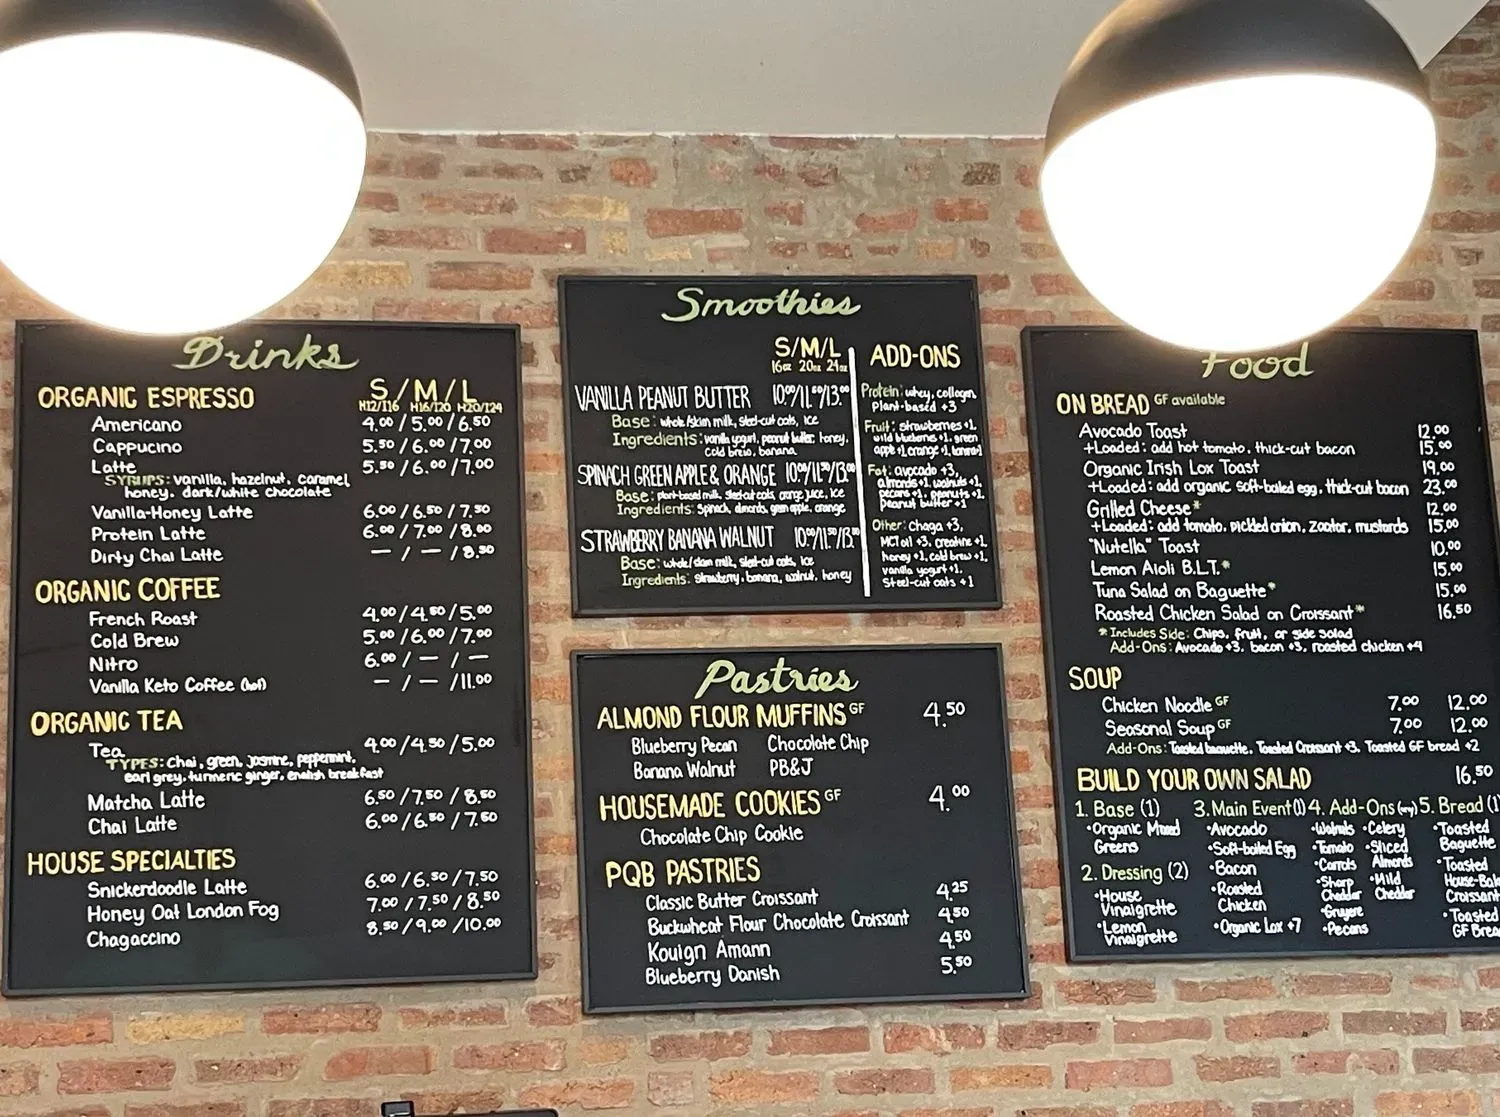 Drinks
ORGANIC ESPRESSO S/M/L
H12/I16 H16/I20 H20/I24
Americano 4.00/5.00/6.50
Cappucino 5.50/6.00/7.00
Latte 5.50/6.00/7.00
SYRUPS: vanilla, hazelnut, caramel,
honey, dark/white chocolate
Vanilla-Honey Latte 6.00/6.50/7.50
Protein Latte 6.00/7.00/8.00
Dirty Chai Latte —/—/8.50
ORGANIC COFFEE
French Roast 4.00/4.50/5.00
Cold Brew 5.00/6.00/7.00
Nitro 6.00/—/—
Vanilla Keto Coffee (hot) —/—/11.00
ORGANIC TEA
Tea 4.00/4.50/5.00
TYPES: chai, green, jasmine, peppermint,
earl grey, turmeric ginger, english breakfast
Matcha Latte 6.50/7.50/8.50
Chai Latte 6.00/6.50/7.50
HOUSE SPECIALTIES
Snickerdoodle Latte 6.00/6.50/7.50
Honey Oat London Fog 7.00/7.50/8.50
Chagaccino 8.50/9.00/10.00
Smoothies
S/M/L
16oz 20oz 24oz
VANILLA PEANUT BUTTER 10.00/11.50/13.00
Base: whole/skim milk, steel-cut oats, ice
Ingredients: vanilla yogurt, peanut butter, honey,
cold brew, banana
SPINACH GREEN APPLE & ORANGE 10.00/11.50/13.00
Base: plant-based milk, steel-cut oats, orange juice, ice
Ingredients: Spinach, almonds, green apple, orange
STRAWBERRY BANANA WALNUT 10.00/11.50/13.00
Base: whole/skim milk, steel-cut oats, ice
Ingredients: strawberry, banana, walnut, honey
ADD-ONS
Protein: whey, collagen,
Plant-based +3
Fruit: strawberries +1,
wild blueberries +1, green
apple +1, orange +1, banana +1
Fat: avocado +3,
almonds +1, walnuts +1,
pecans +1, peanuts +1,
Peanut butter +1
Other: Chaga +3,
MCT oil +3, creatine +1,
honey +1, cold brew +1,
vanilla yogurt +1,
Steel-cut oats +1
Pastries
ALMOND FLOUR MUFFINS GF 4.50
Blueberry Pecan Chocolate Chip
Banana Walnut PB&J
HOUSEMADE COOKIES GF 4.00
Chocolate Chip Cookie
PQB PASTRIES
Classic Butter Croissant 4.25
Buckwheat Flour Chocolate Croissant 4.50
Kouign Amann 4.50
Blueberry Danish 5.50
Food
ON BREAD GF available
Avocado Toast 12.00
+Loaded: add hot tomato, thick-cut bacon 15.00
Organic Irish Lox Toast 19.00
+Loaded: add organic soft-boiled egg, thick-cut bacon 23.00
Grilled Cheese* 12.00
+Loaded: add tomato, pickled onion, zaatar, mustards 15.00
"Nutella" Toast 10.00
Lemon Aioli B.L.T.* 15.00
Tuna Salad on Baguette* 15.00
Roasted Chicken Salad on Croissant* 16.50
*Includes Side: Chips, fruit, or side salad
Add-Ons: Avocado +3, bacon +3, roasted chicken +4
SOUP
Chicken Noodle GF 7.00 12.00
Seasonal Soup GF 7.00 12.00
Add-Ons: Toasted baguette, Toasted Croissant +3, Toasted GF bread +2
BUILD YOUR OWN SALAD 16.50
1. Base (1)
•Organic Mixed
Greens
2. Dressing (2)
•House
Vinaigrette
•Lemon
Vinaigrette
3. Main Event (1)
•Avocado
•Soft-boiled Egg
•Bacon
•Roasted
Chicken
•Organic Lox +7
4. Add-Ons
•Walnuts
•Tomato
•Carrots
•Sharp
Cheddar
•Gruyere
•Pecans
•Celery
•Sliced
Almonds
•Mild
Cheddar
5. Bread (1
•Toasted
Baguette
•Toasted
House-Bak
Croissant
•Toasted
GF Brea